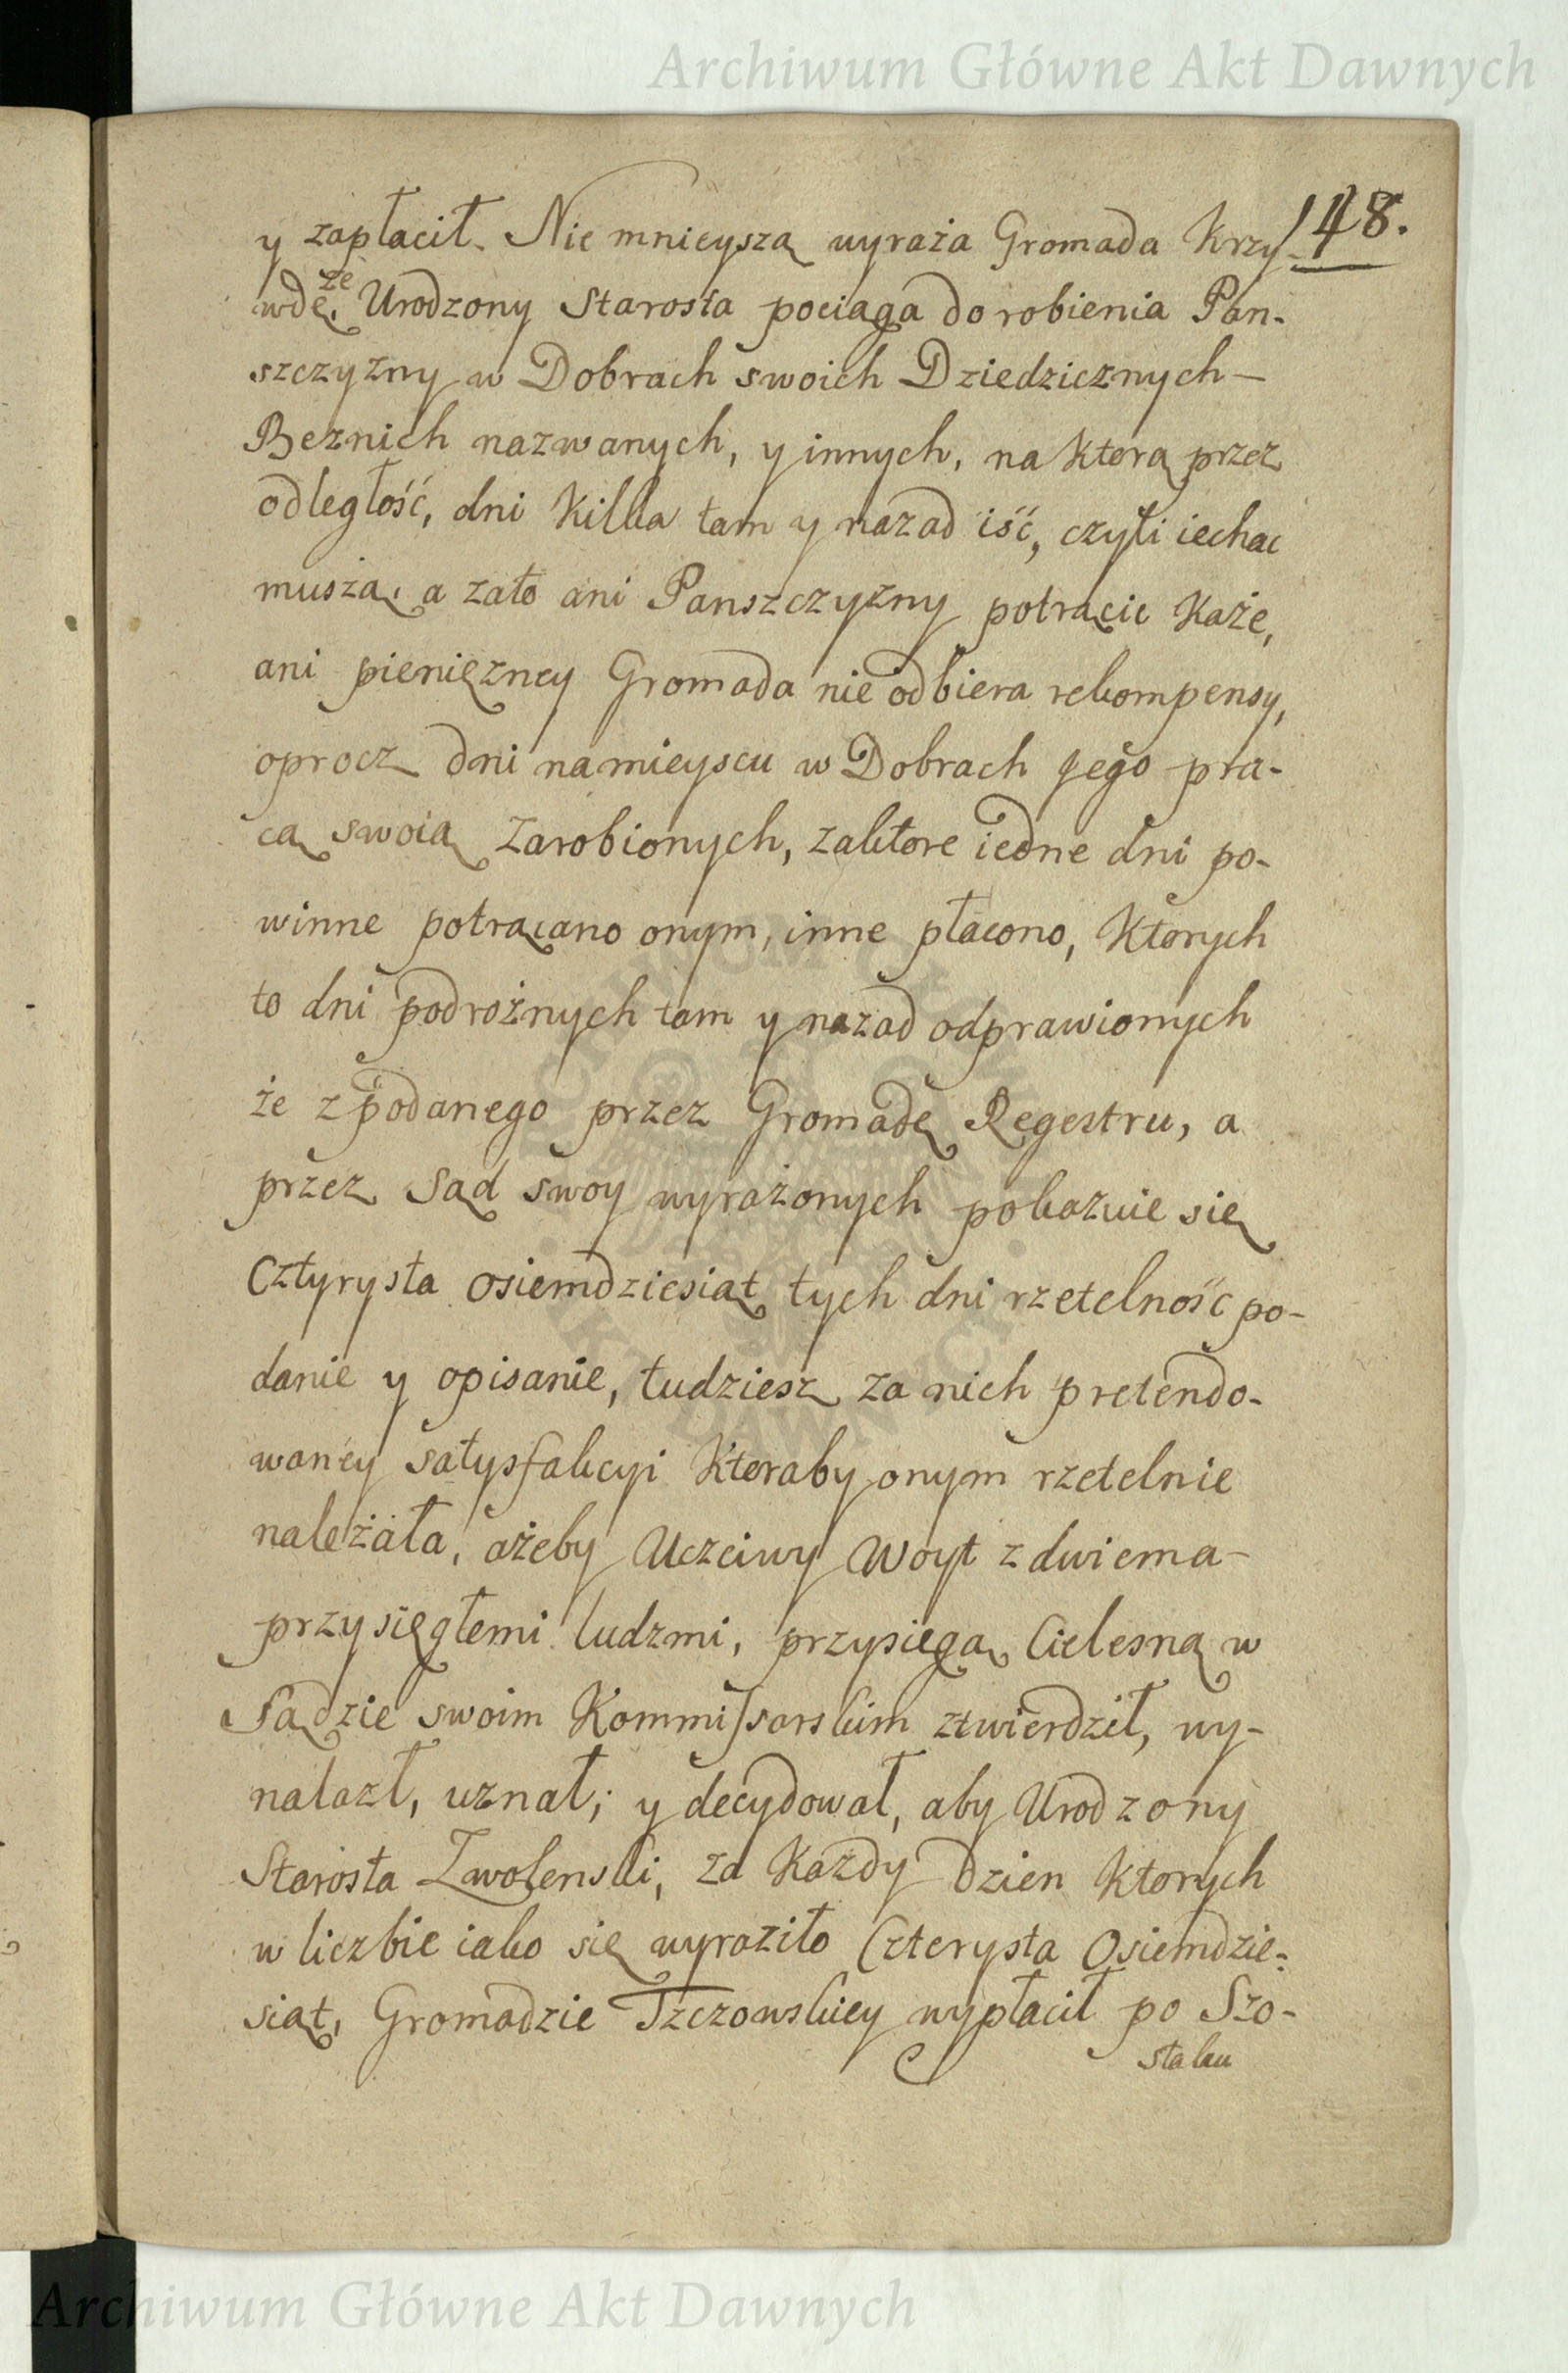 Archiwum Główne Akt Dawnych
148.
y zapłacił. Nie mnieyszą wyraża Gromada Krzy-
wdę, że Urodzony Starosta pociąga do robienia Pan-
szczyzny w Dobrach swoich Dziedzicznych—
Beznich nazwanych, y innych, na ktorą przez
odległość, dni kilka tam y nazad iść, czyli iechac
muszą, a zato ani Panszczyzny potrącic każe,
ani pienięzney Gromada nie odbiera rekompensy,
oprocz dni na mieyscu w Dobrach Jego pra-
cą swoią zarobionych, zaktore iedne dni po-
winne potrącano onym, inne płacono, Ktorych
to dni podrożnych tam y nazad odprawionych
że z podanego przez Gromadę Regestru, a
przez Sąd swoy wyrażonych pokazuie się
Cztyrysta osiemdziesiąt tych dni rzetelność po-
danie y opisanie, tudziesz za nich pretendo-
waney satysfakcyi Ktoraby onym rzetelnie
należała, ażeby Uczciwy Woyt z dwiema—
przysięgłemi ludzmi, przysięgą Cielesną w
Sądzie swoim Kommissarskim ztwierdził, wy-
nalazł, uznał; y decydował, aby Urodzony
Starosta Zwolenski, za każdy dzien Ktorych
w liczbie iako się wyraziło Czterysta Osiemdzie-
siąt, Gromadzie Tzczowskiey wypłacił po Szo-
staku
Archiwum Główne Akt Dawnych